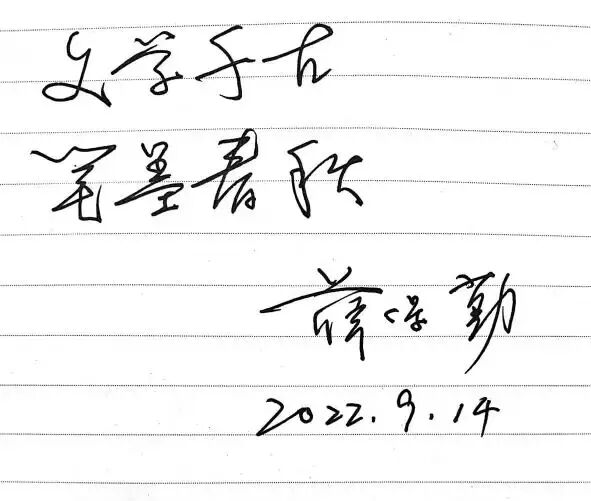 文学千古
笔墨春秋
薛保勤
2022.9.14